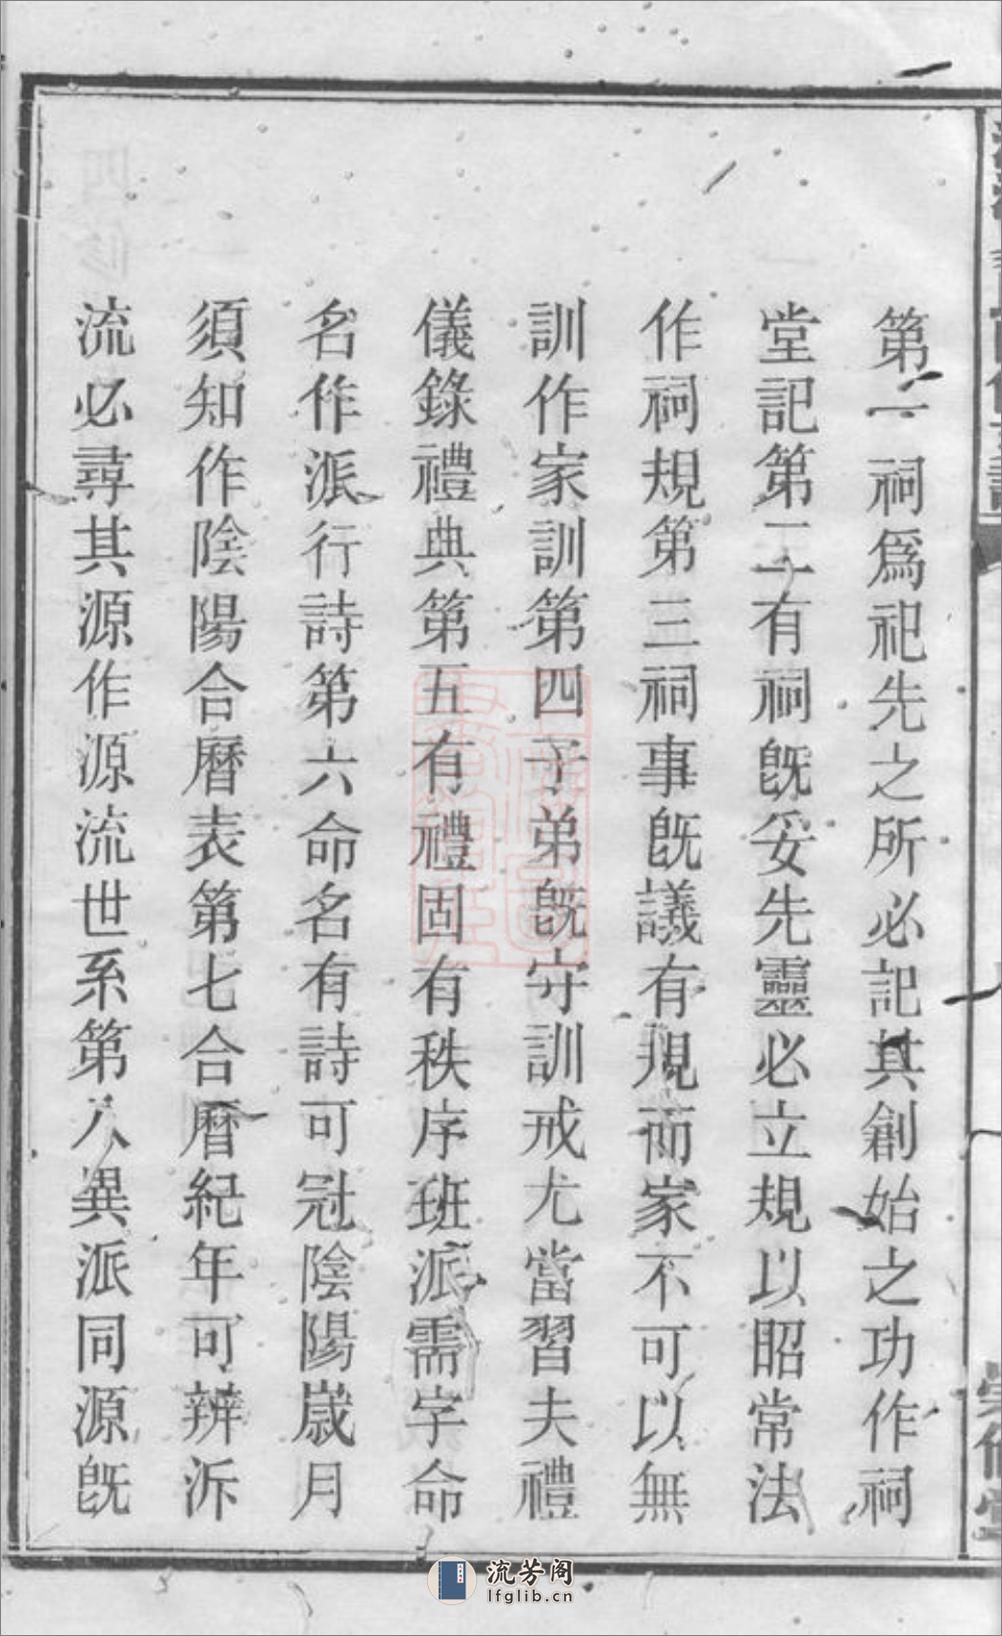 第一祠爲祀先之所必記其創始之功作祠
堂記第二有祠旣妥先靈必立規以昭常法
作祠規第三祠事旣議有規而家不可以無
訓作家訓第四子弟旣守訓戒尤當習夫禮
儀錄禮典第五有禮固有秩序班派需字命
名作派行詩第六命名有詩可冠陰陽嵗月
須知作陰陽合曆表第七合曆紀年可辨泝
流必尋其源作源流世系第八異派同源旣
流芳阁
lfglib.cn